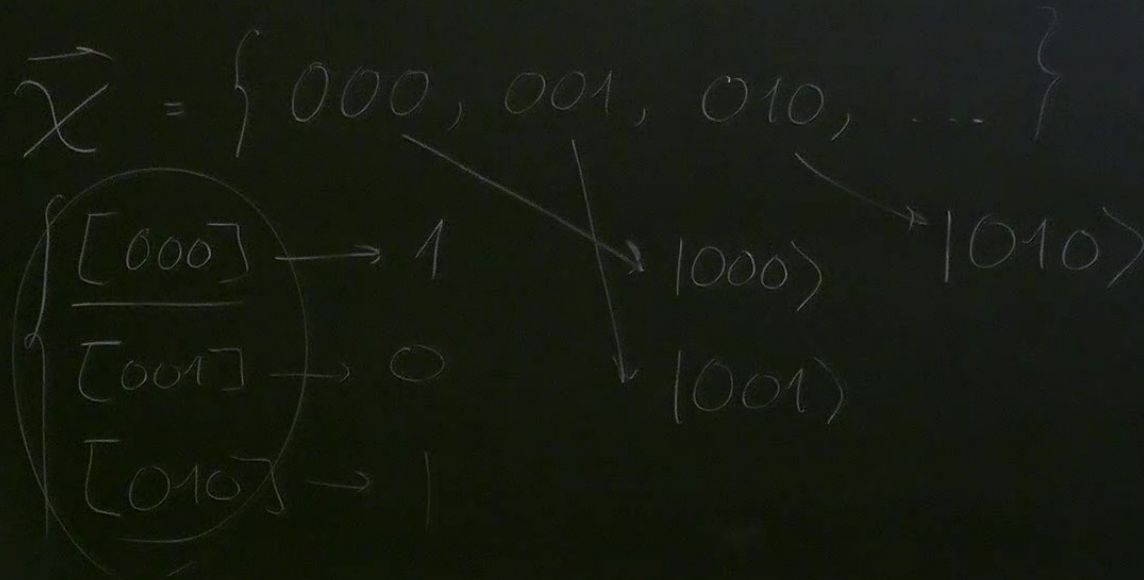 χ⃗ = { 000, 001, 010, .... }
[000] → 1 |000⟩ |010⟩
[001] → 0 |001⟩
[010] → 1